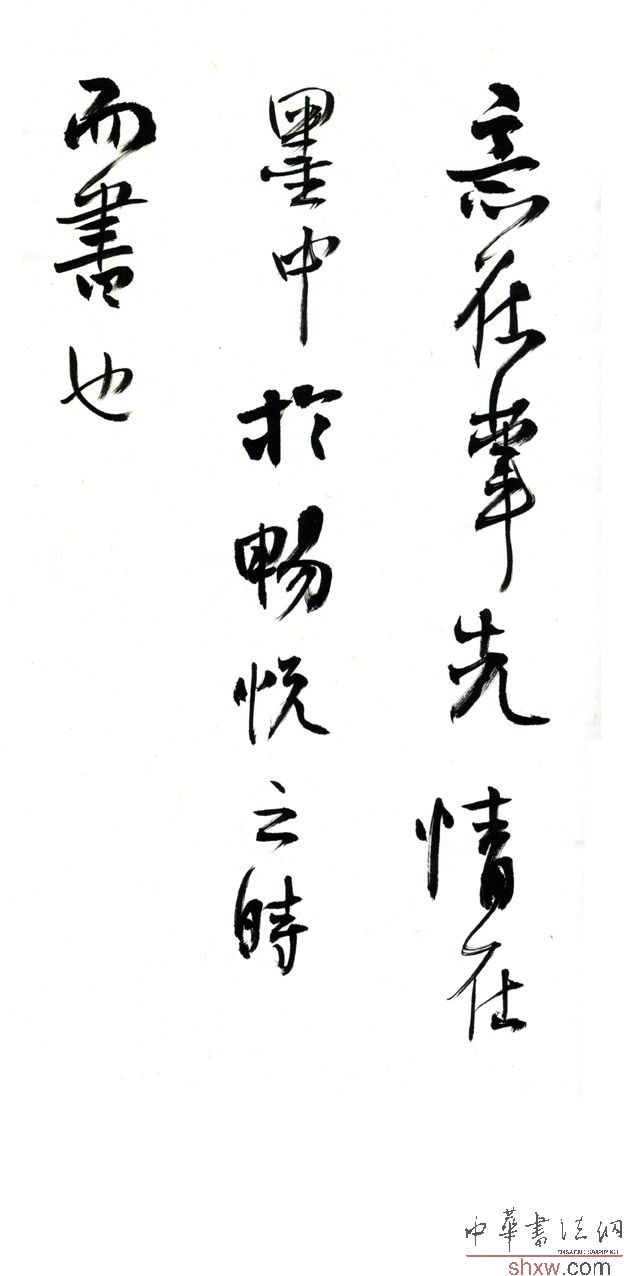 意在筆先情在
墨中於暢悅之時
而書也
中華書法網
shxw.com